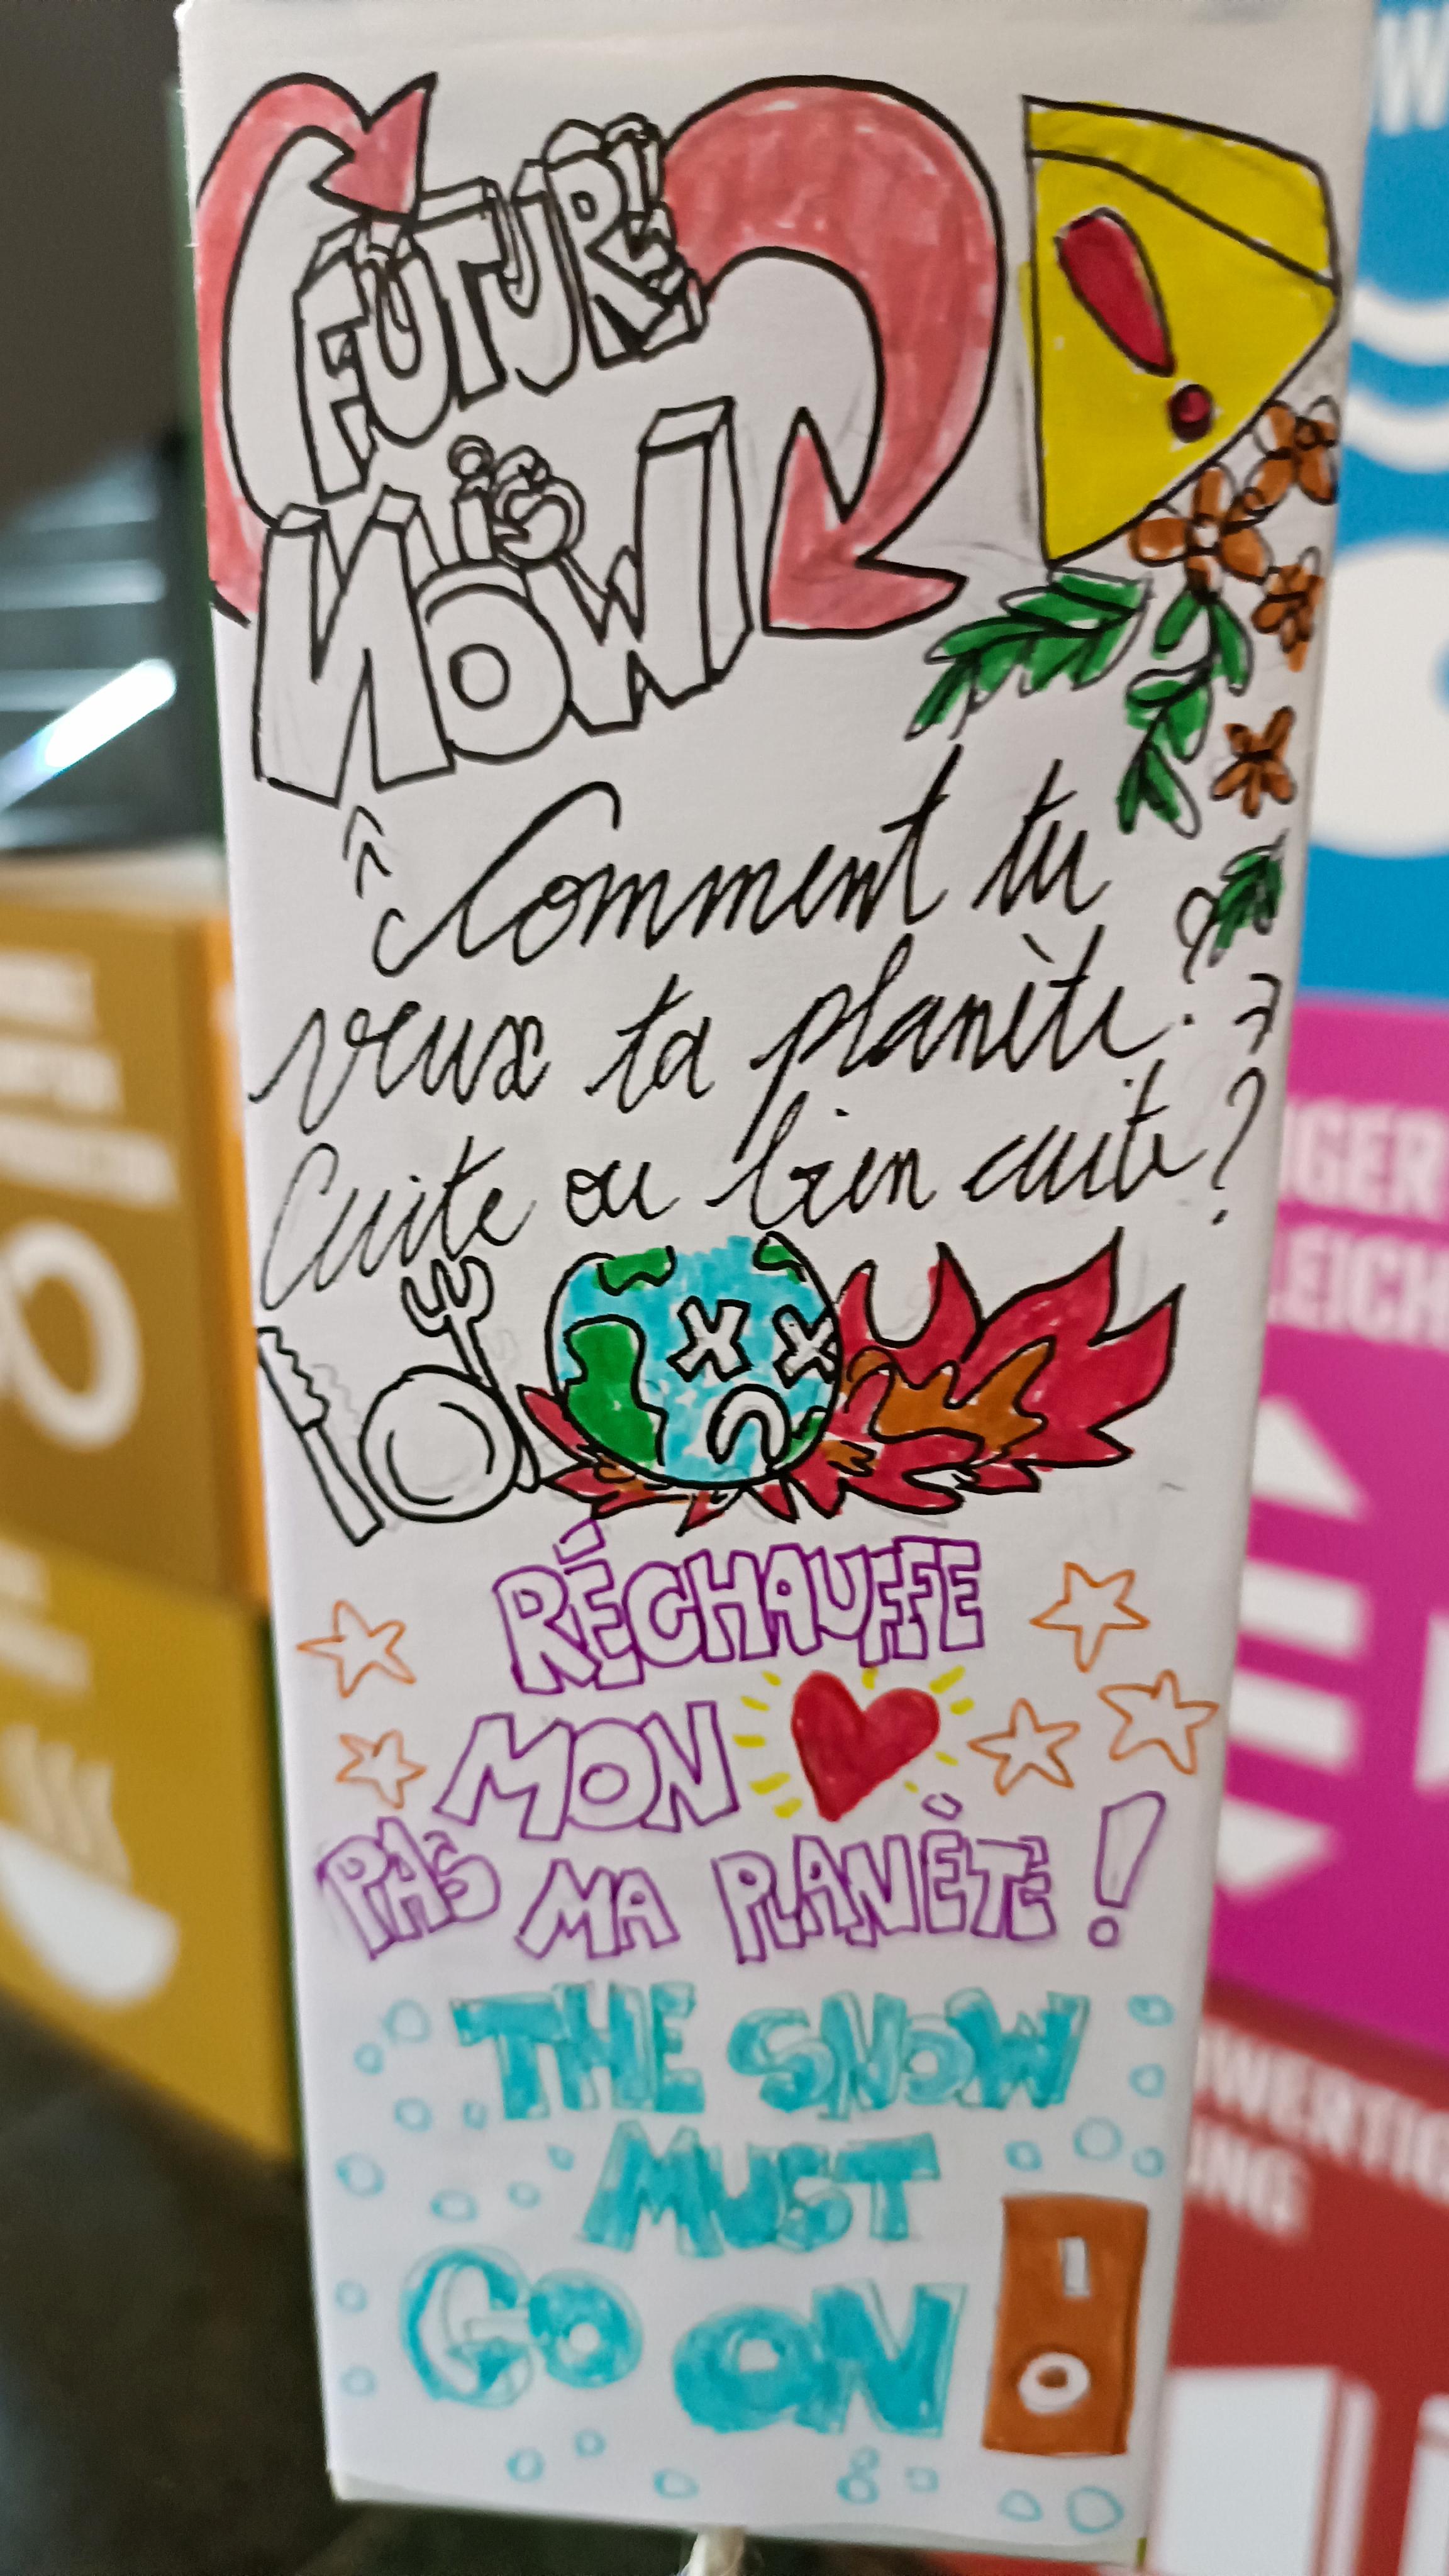 FUTURE
is
NOW!
« Comment tu
veux ta planète ? »
Cuite ou bien cuite ?
RÉCHAUFFE
MON
PAS MA PLANÈTE !
THE SNOW
MUST
GO ON
GER
LEICH
WERTIG
UNG